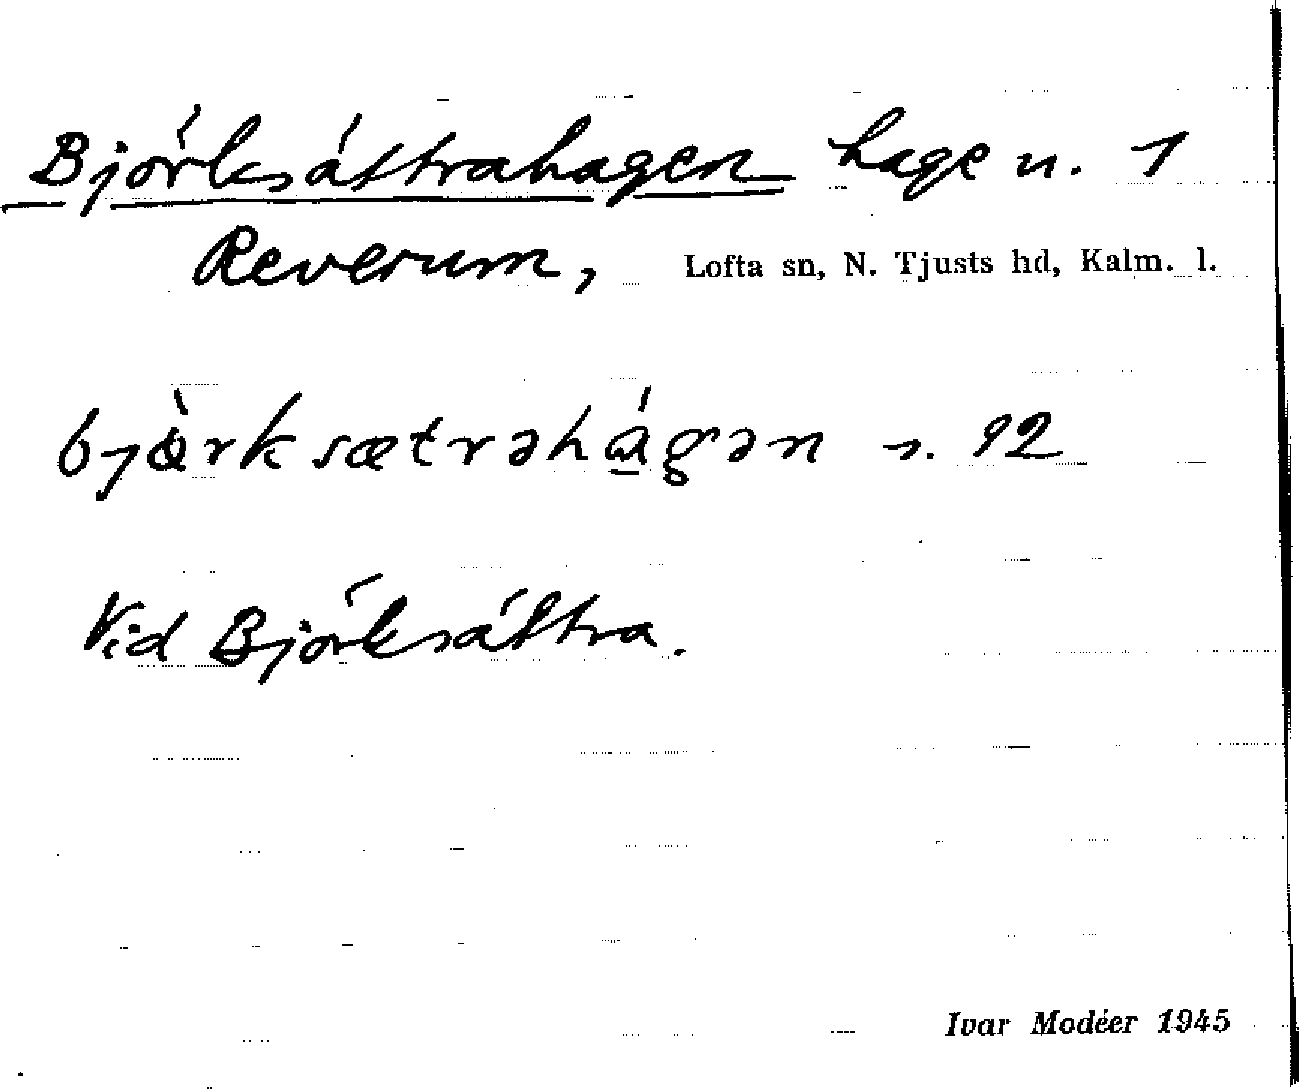 Björksättrahagen hage u. 1
Reverum, Lofta sn, N. Tjusts hd, Kalm. l.
bjö̀rksætrəhɑ́gən s. 92
Vid Björksättra.
Ivar Modéer 1945